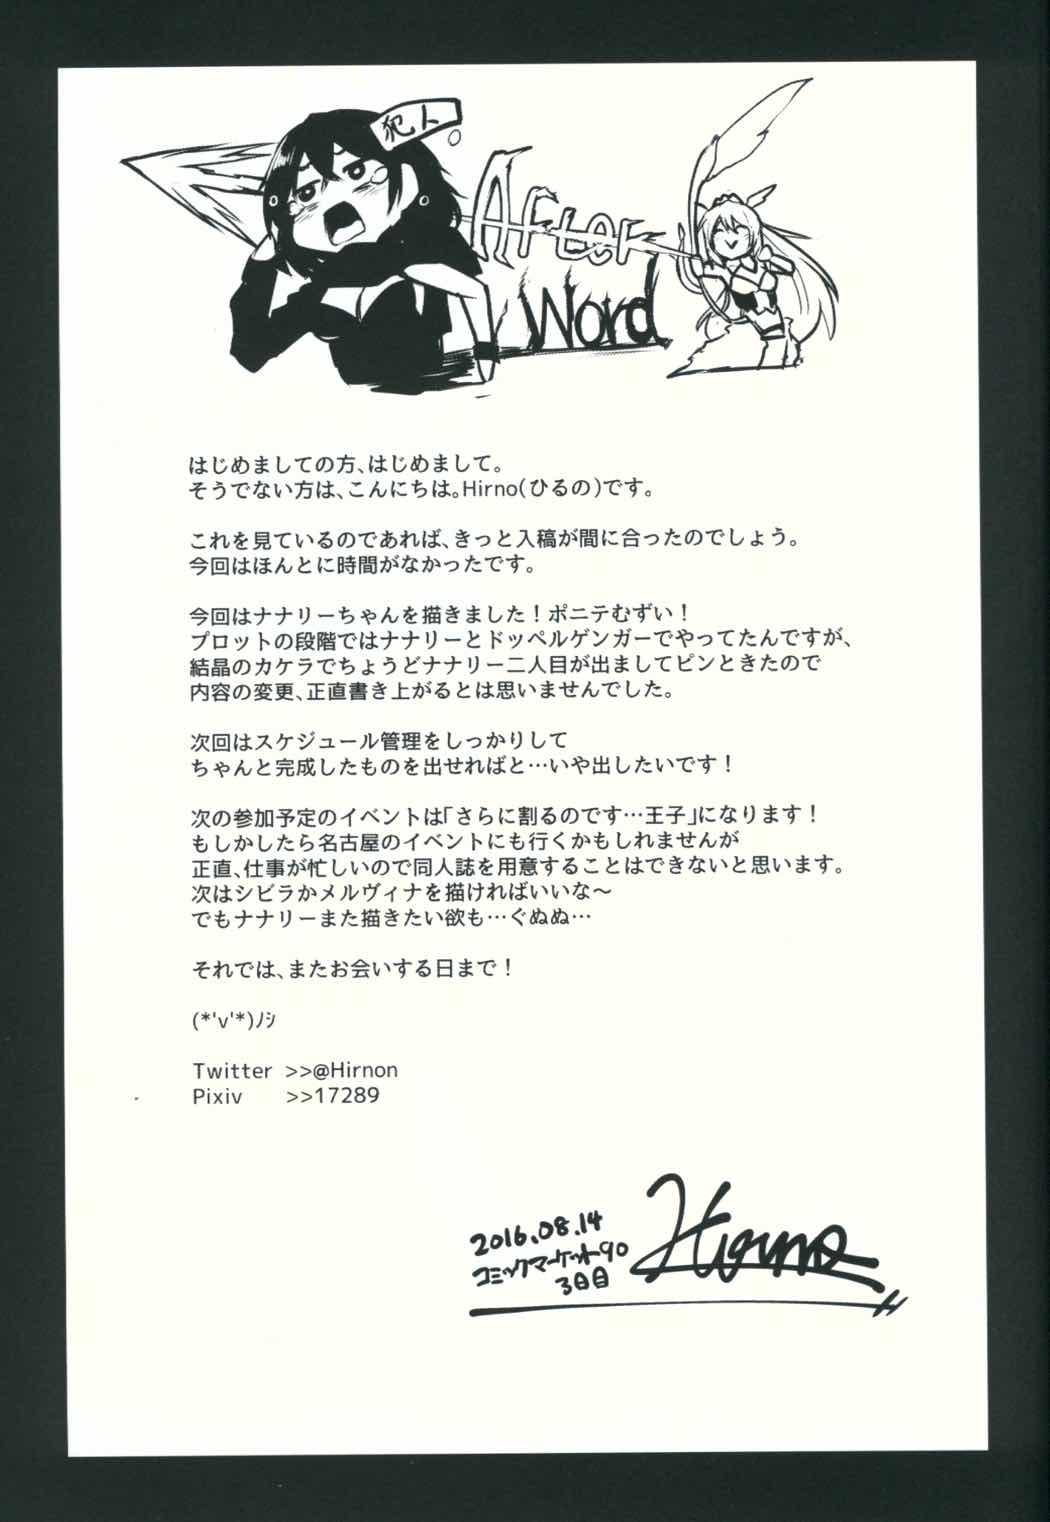 犯人
After
Word
はじめましての方、はじめまして。
そうでない方は、こんにちは。Hirno(ひるの)です。
これを見ているのであれば、きっと入稿が間に合ったのでしょう。
今回はほんとに時間がなかったです。
今回はナナリーちゃんを描きました！ポニテむずい！
プロットの段階ではナナリーとドッペルゲンガーでやってたんですが、
結晶のカケラでちょうどナナリー二人目が出ましてピンときたので
内容の変更、正直書き上がるとは思いませんでした。
次回はスケジュール管理をしっかりして
ちゃんと完成したものを出せればと…いや出したいです！
次の参加予定のイベントは「さらに割るのです…王子」になります！
もしかしたら名古屋のイベントにも行くかもしれませんが
正直、仕事が忙しいので同人誌を用意することはできないと思います。
次はシビラかメルヴィナを描ければいいな～
でもナナリーまた描きたい欲も…ぐぬぬ…
それでは、またお会いする日まで！
(*'v'*)ﾉｼ
Twitter >>@Hirnon
Pixiv >>17289
2016.08.14
コミックマーケット90
3日目
Hirno